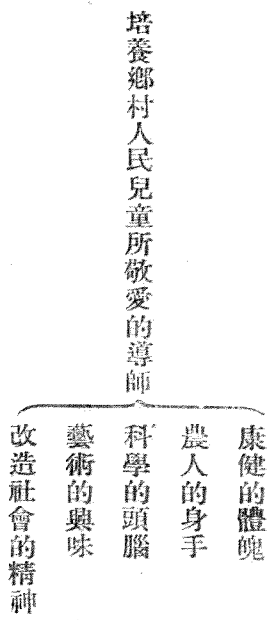 培養鄉村人民兒童所敬愛的導師
康健的體魄
農人的身手
科學的頭腦
藝術的興味
改造社會的精神